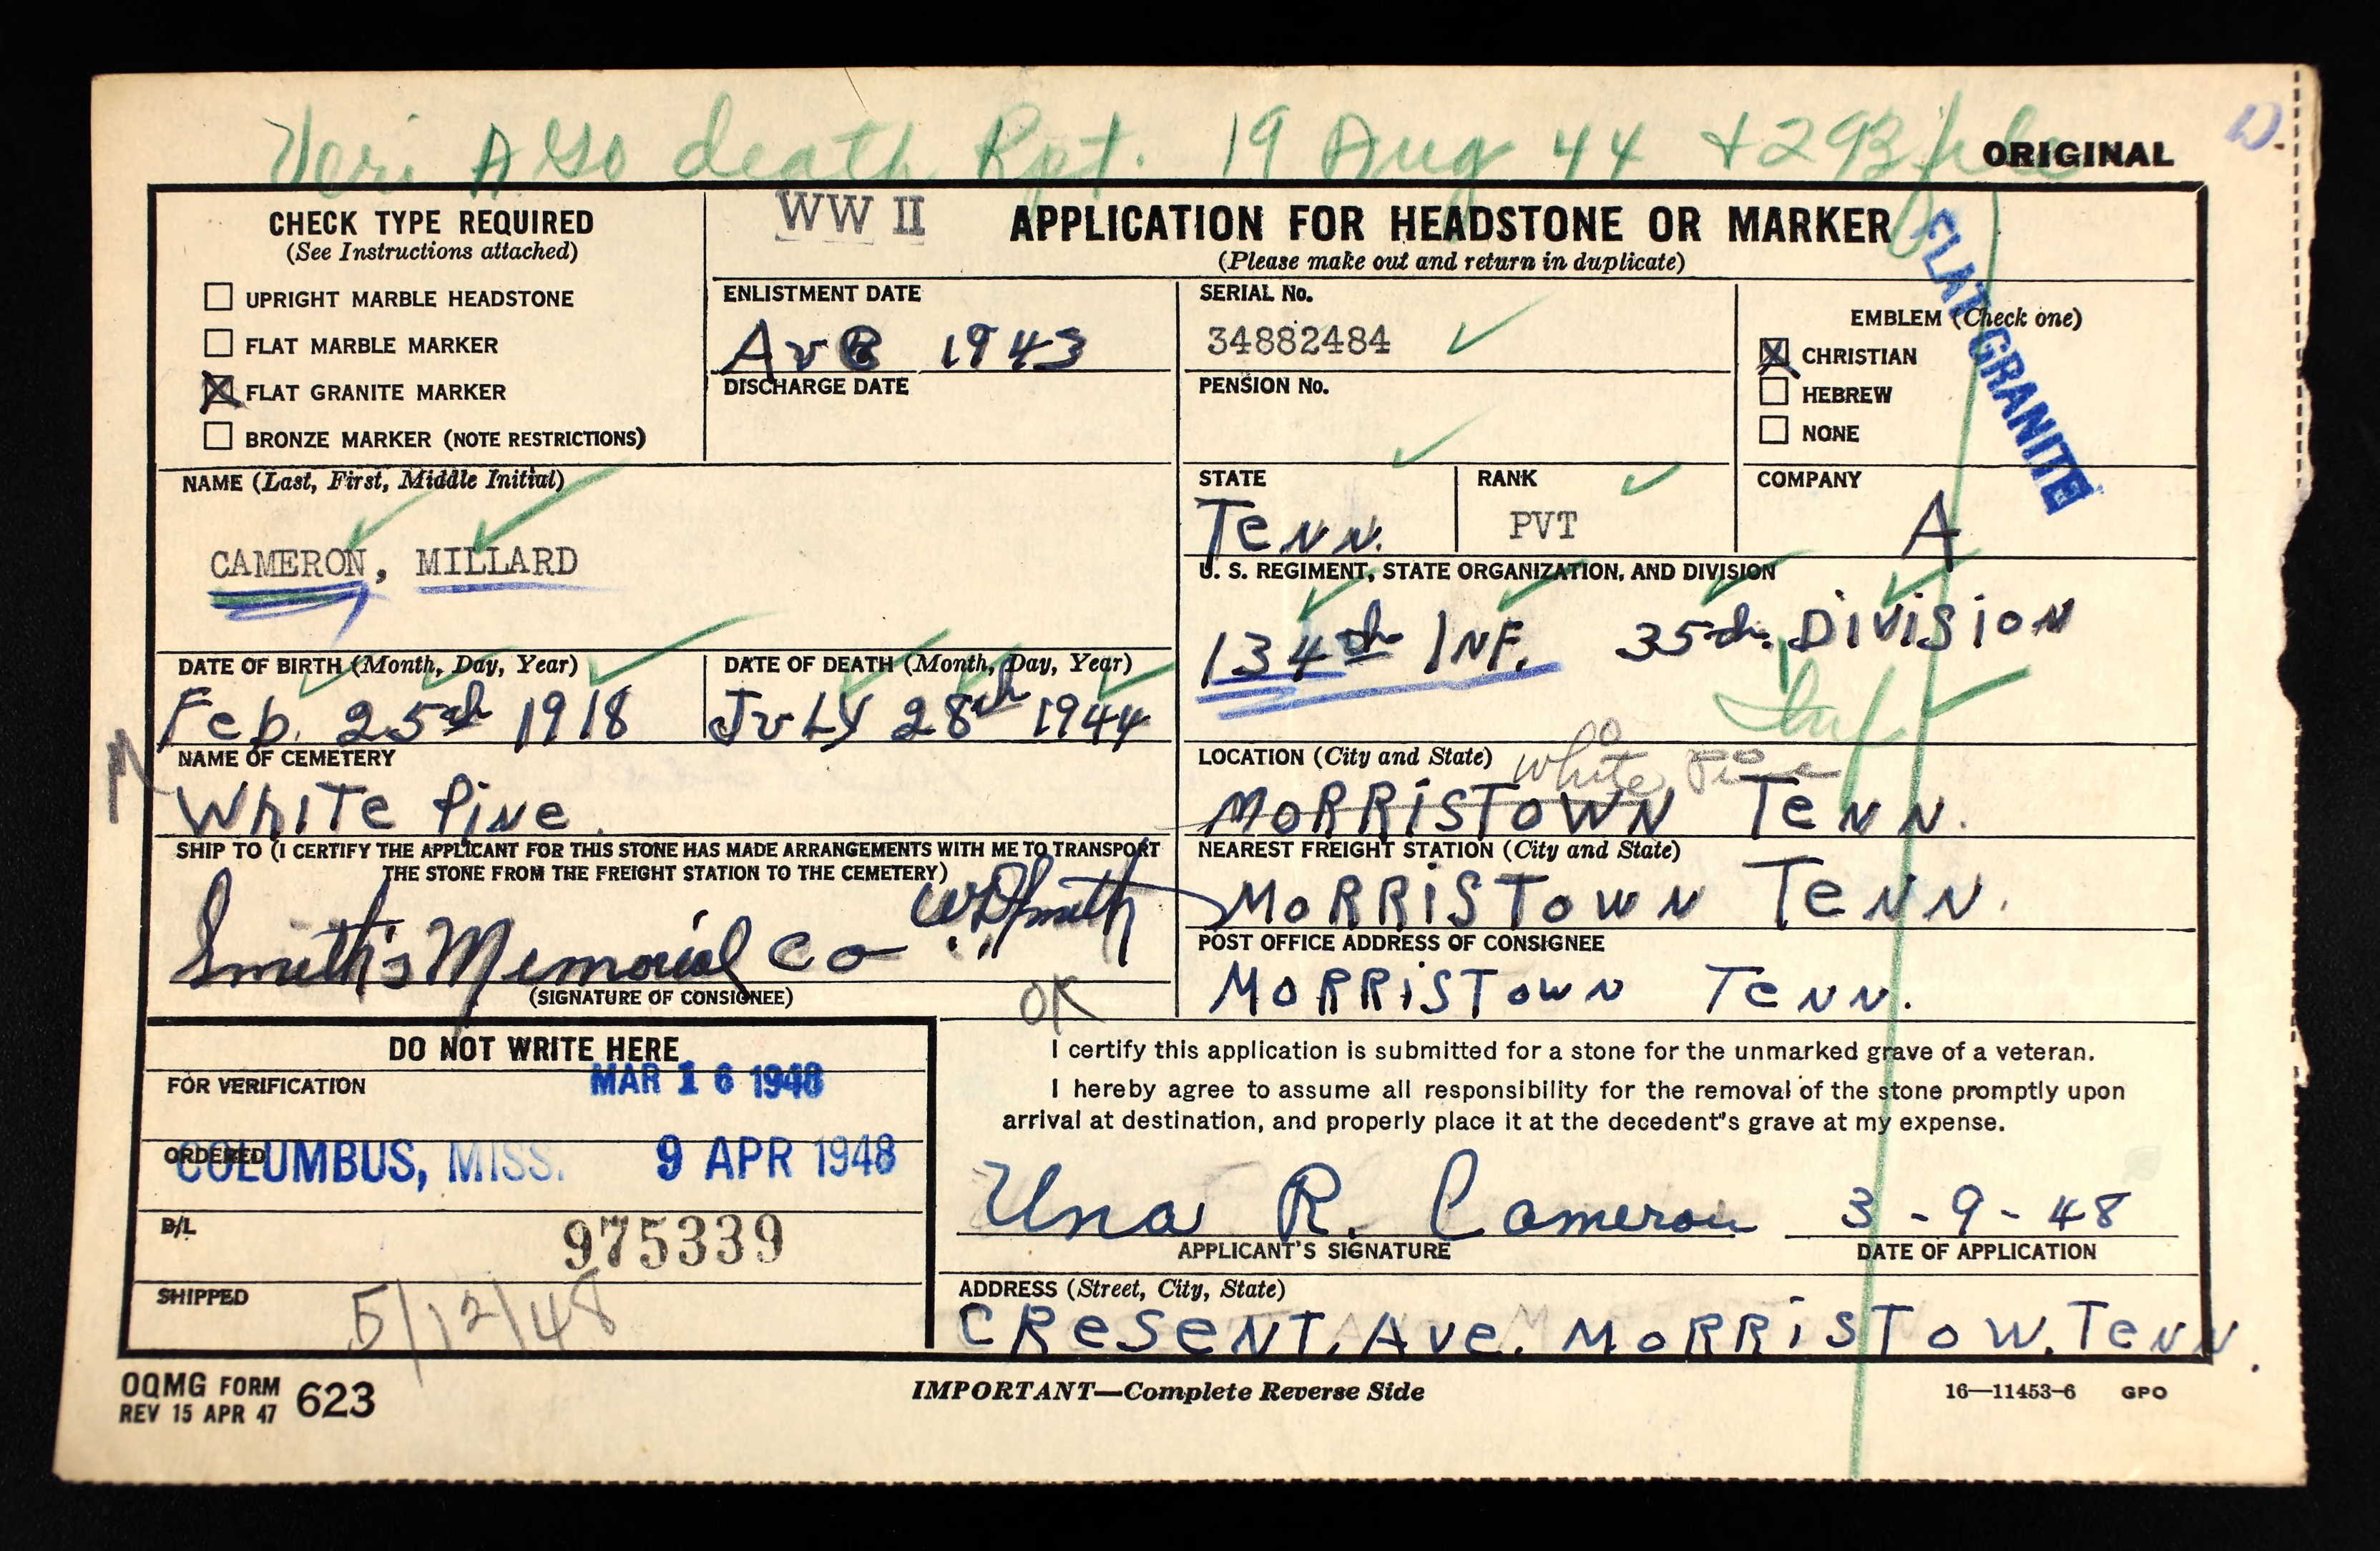 Veri AGO death Rpt. 19 Aug 44 + 293 file
ORIGINAL
D.
CHECK TYPE REQUIRED
(See Instructions attached)
UPRIGHT MARBLE HEADSTONE
FLAT MARBLE MARKER
X FLAT GRANITE MARKER
BRONZE MARKER (NOTE RESTRICTIONS)
WW II
APPLICATION FOR HEADSTONE OR MARKER
(Please make out and return in duplicate)
FLAT GRANITE
ENLISTMENT DATE
1943
DISCHARGE DATE
SERIAL No.
34882484
PENSION No.
EMBLEM (Check one)
X CHRISTIAN
HEBREW
NONE
NAME (Last, First, Middle Initial)
CAMERON, MILLARD
STATE
Tenn.
RANK
PVT
COMPANY
A
U. S. REGIMENT, STATE ORGANIZATION, AND DIVISION
134th INF. 35th. DIVISION
Inf
DATE OF BIRTH (Month, Day, Year)
Feb. 25th 1918
DATE OF DEATH (Month, Day, Year)
JuLY 28th 1944
NAME OF CEMETERY
WhiTe Pine.
LOCATION (City and State)
White Pine
MORRiSTOWN Tenn.
SHIP TO (I CERTIFY THE APPLICANT FOR THIS STONE HAS MADE ARRANGEMENTS WITH ME TO TRANSPORT
THE STONE FROM THE FREIGHT STATION TO THE CEMETERY)
Smith's Memorial Co WD Smith
(SIGNATURE OF CONSIGNEE)
OK
NEAREST FREIGHT STATION (City and State)
MORRiSTOWN TeNN.
POST OFFICE ADDRESS OF CONSIGNEE
MORRiSTOWN TeNN.
DO NOT WRITE HERE
FOR VERIFICATION
MAR 16 1948
ORDERED
COLUMBUS, MISS. 9 APR 1948
B/L
975339
SHIPPED
5/12/48
I certify this application is submitted for a stone for the unmarked grave of a veteran.
I hereby agree to assume all responsibility for the removal of the stone promptly upon
arrival at destination, and properly place it at the decedent's grave at my expense.
Una R. Cameron
3-9-48
APPLICANT'S SIGNATURE
DATE OF APPLICATION
ADDRESS (Street, City, State)
CReSeNT. Ave. MORRiSTOW. TeNN.
OQMG FORM
REV 15 APR 47
623
IMPORTANT—Complete Reverse Side
16—11453-6 GPO